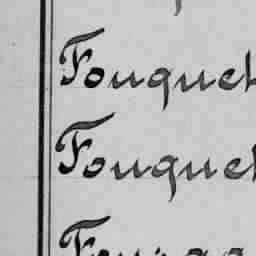 Fouquet
Fouquet